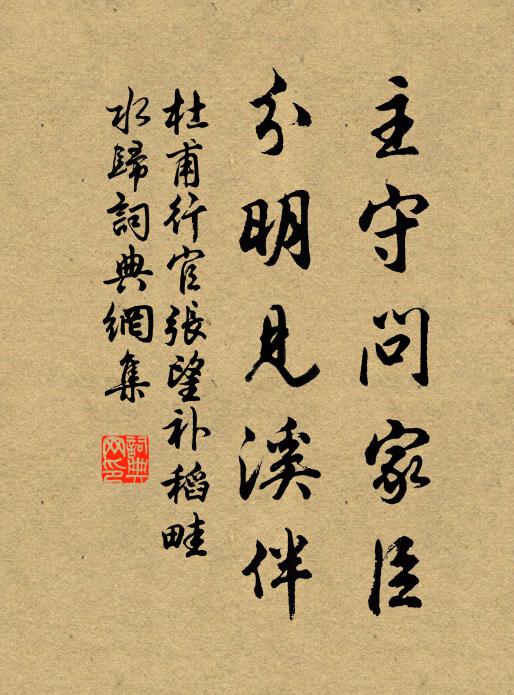 主守问家臣
分明見溪伴
杜甫行官張望补稻畦
水歸詞典網集
詞典網印